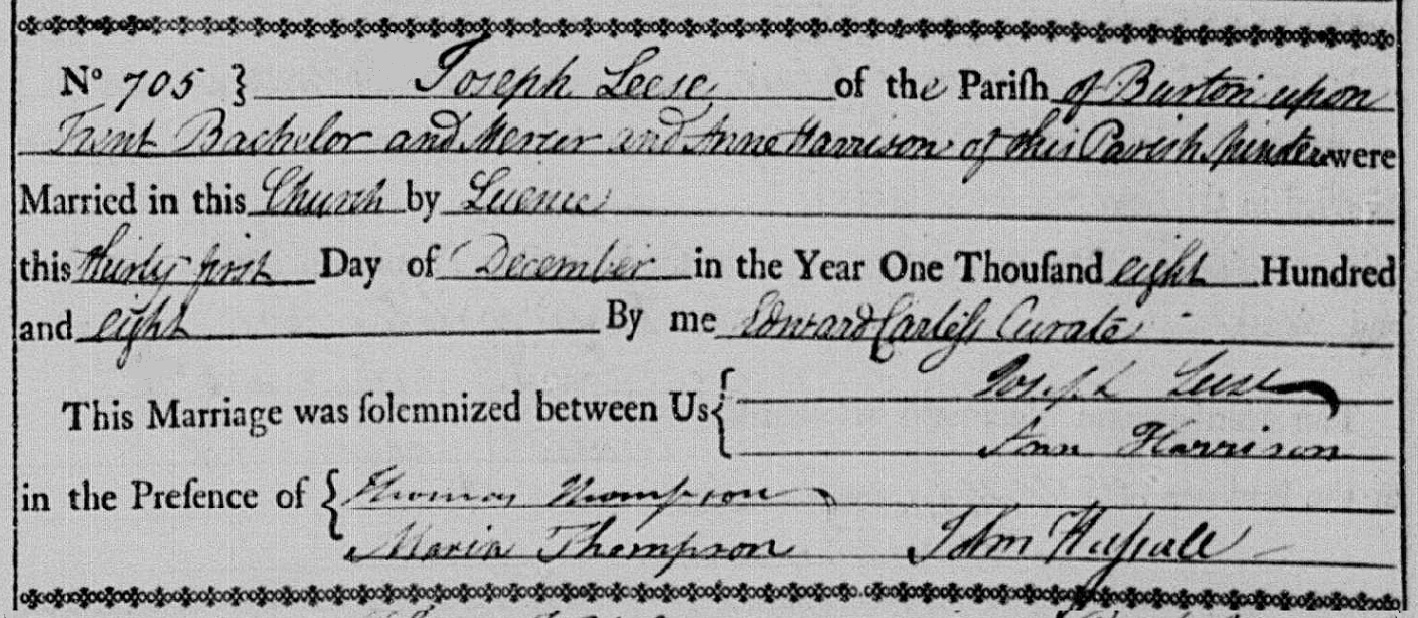 No 705 } Joseph Leese of the Pariſh of Burton upon
Trent Bachelor and Mercer and Anne Harrison of this Parish Spinster were
Married in this Church by Licence
this thirty first Day of December in the Year One Thouſand eight Hundred
and eight By me Edward Carleſs Curate
This Marriage was ſolemnized between Us { Joseph Leese
Ann Harrison
in the Preſence of { Thomas Thompson
Maria Thompson John